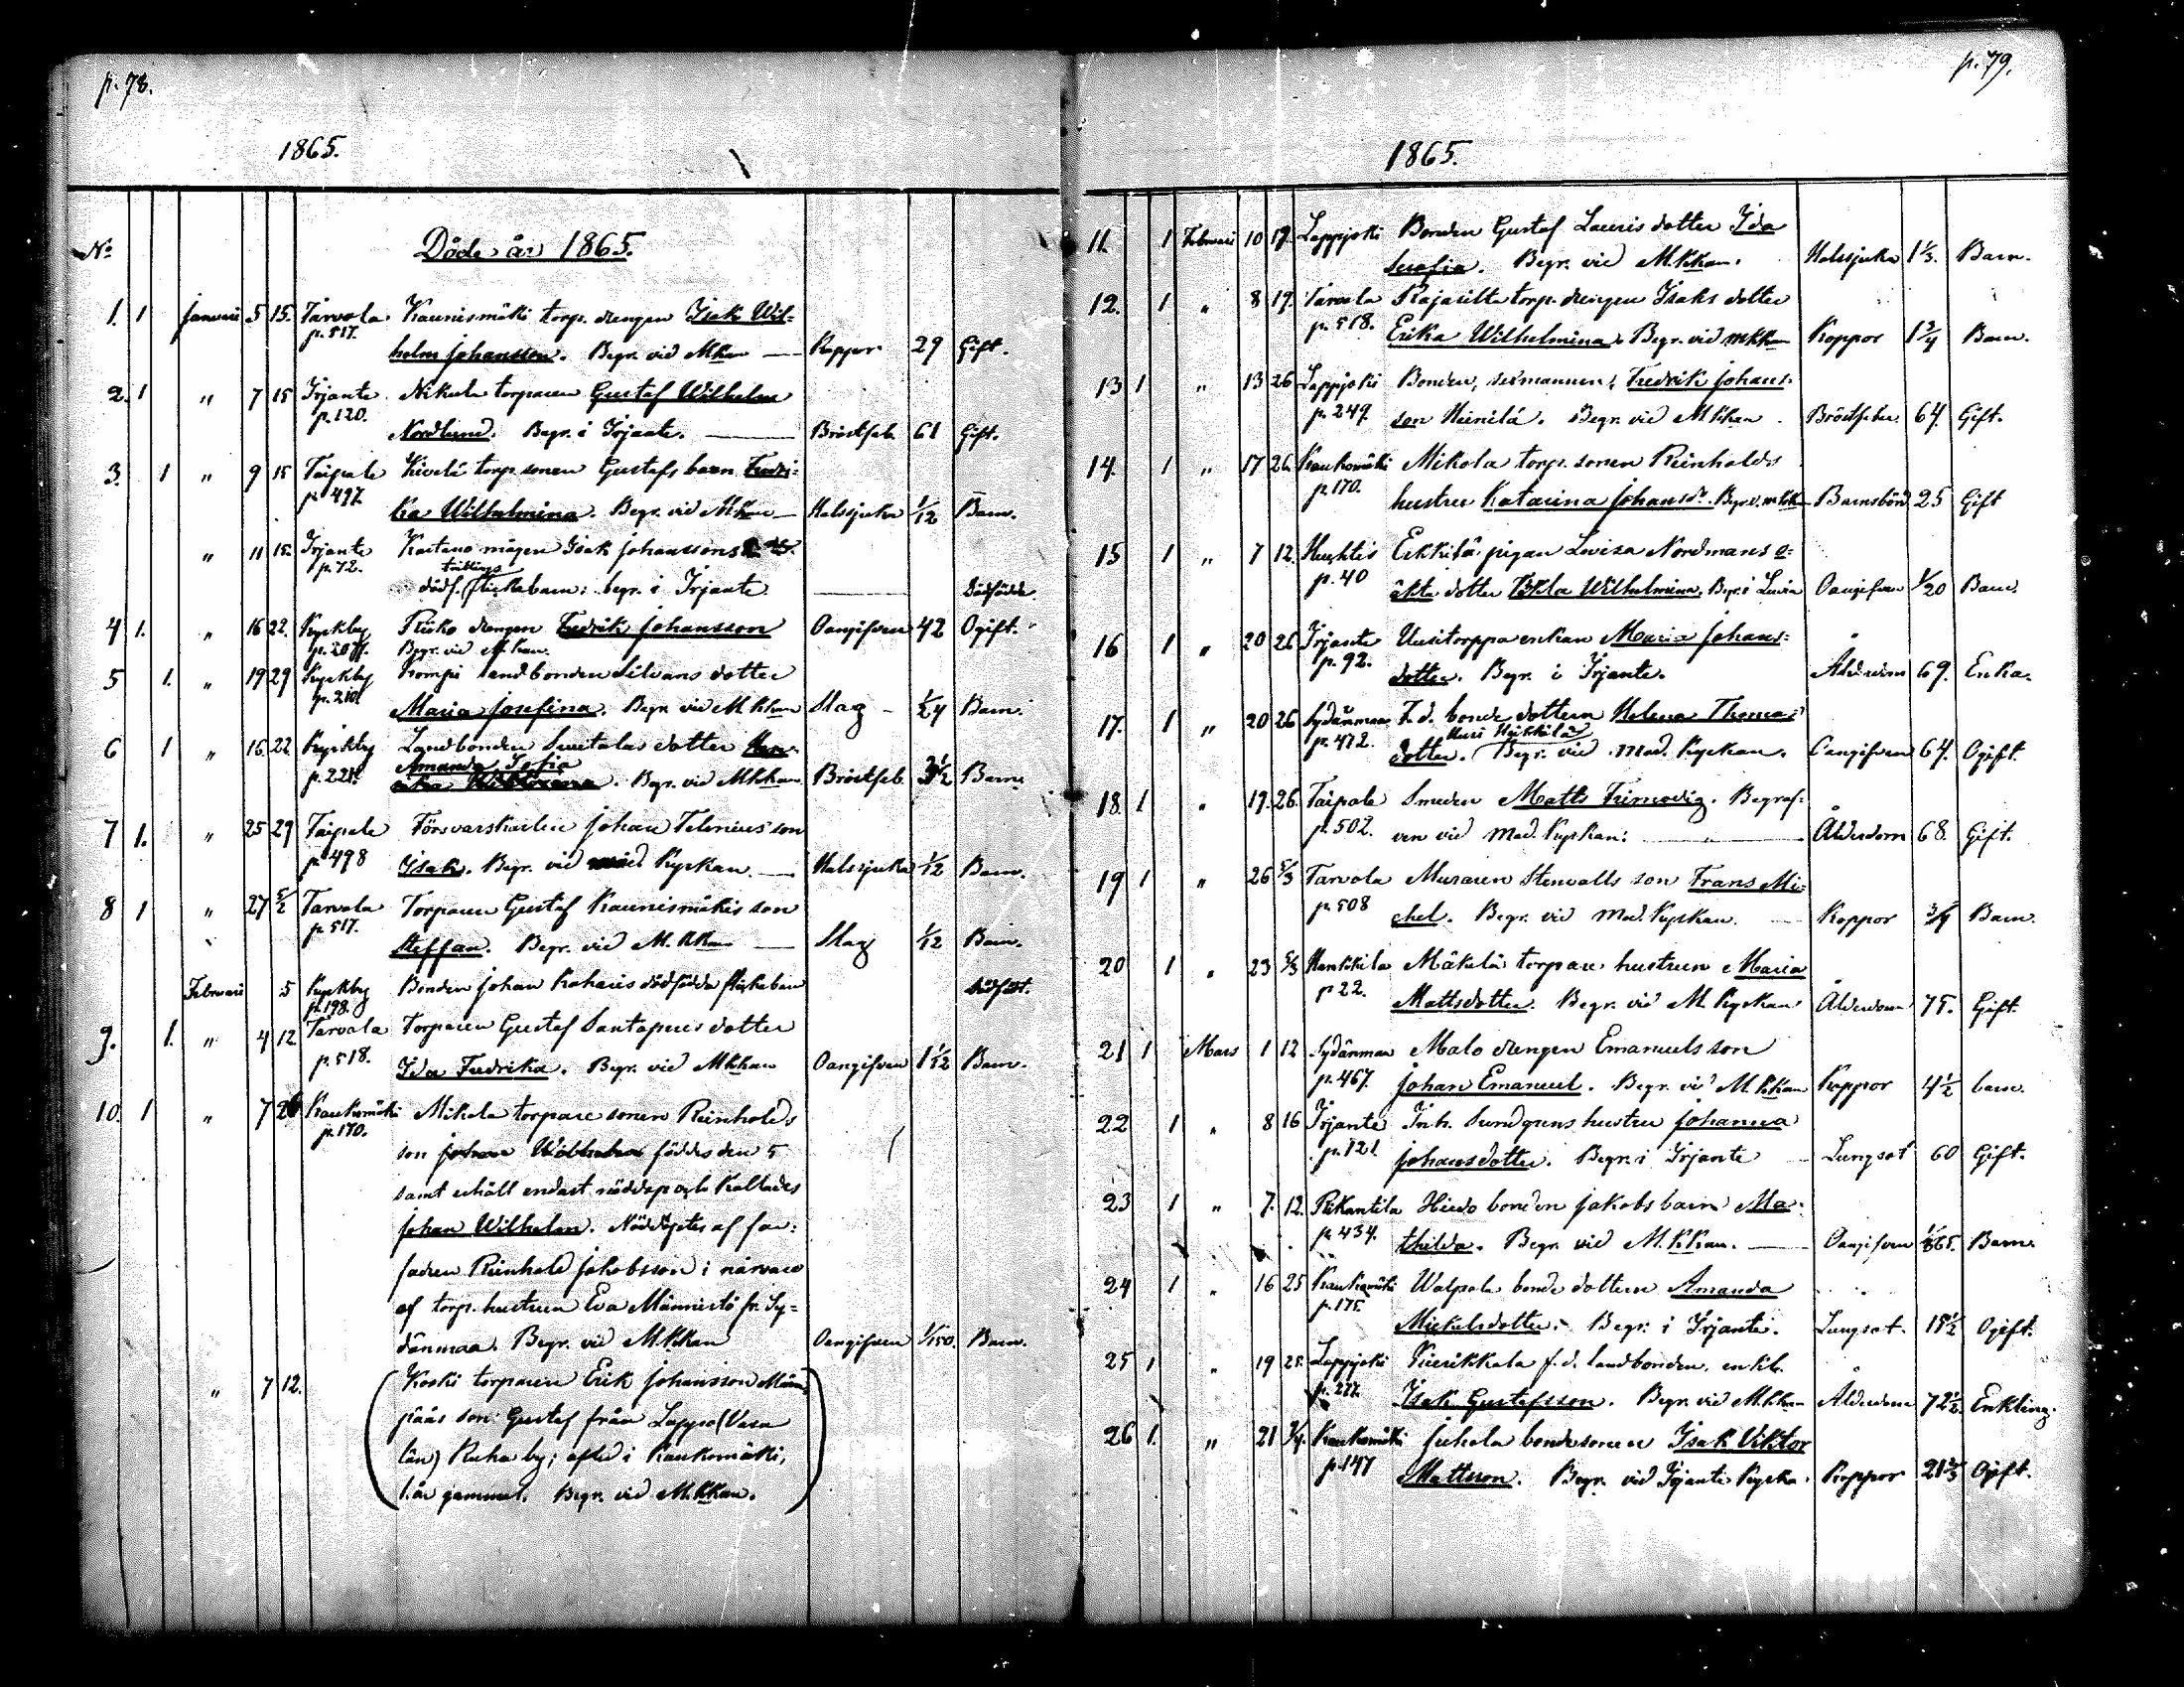 p. 78.
1865.
No
Döde år 1865.
1. 1 Januari 5 15. Tarvola Kaunismäki torp. drengen Isak Wil-
p. 517. helm Johansson. Begr. vid Mkkan — Koppor 29 Gift.
2. 1 " 7 15 Irjante Nikula torparen Gustaf Wilhelm
p. 120. Nordlund. Begr. i Irjante. — Bröstfeb. 61 Gift.
3. 1 " 9 15 Taipale Kivelä torp. sonen Gustafs barn Fredri-
p. 497. ka Wilhelmina. Begr. vid Mkkan — Halssjuka 1/12 Barn.
" 11 15. Irjante Kaitano mågen Isak Johanssons
p. 72. tvillings
dödf. flickebarn: begr. i Irjante — Dödfödde.
4 1. " 16 22. Kyrkby Friko drengen Fredrik Johansson Oangifven 42 Ogift.
p. 207. Begr. vid M.kkan.
5 1. " 19 29 Kyrkby Kompi landbonden Silvans dotter
p. 210. Maria Josefina. Begr. vid M.kkan Slag — 1/24 Barn.
6 1 " 16 22. Kyrkby Landbonden Suutala dotter
p. 221. Amanda Sofia
Begr. vid Mkkan. Bröstfeb. 3 1/2 Barn.
7 1. " 25 29 Taipale Försvarskarlen Johan Telenius' son
p. 498 Isak. Begr. vid Kyrkan. — Halssjuka 1/12 Barn.
8 1 " 27 5/2 Tarvola Torparen Gustaf Kaunismäkis son
p. 517. Steffan. Begr. vid M. Kkan — Slag 1/12 Barn.
Februari 5 Kyrkby Bonden Johan Kaharis dödfödda flickebarn dödfödt.
p. 198.
9. 1. " 4 12 Tarvola Torparen Gustaf Santapuris dotter
p. 518. Ida Fredrika. Begr. vid Mkkan Oangifven 1 1/12 Barn.
10. 1 " 7 26 Kaukomäki Mikola torpare sonen Reinholds
p. 170. son Johan Wilhelm föddes den 5
samt erhöll endast nöddop och kallades
Johan Wilhelm. Nöddöptes af far-
fadren Reinhold Jakobsson i närvaro
af torp. hustrun Eva Männistö fr. Sy-
dänmaa. Begr. vid M.kkan Oangifven 1/150. Barn.
" 7 12. (Koski torparen Erik Johansson
pääs son Gustaf från Lappo (Vasa
län) Ruha by; afled i Kaukomäki,
1. år gammal. Begr. vid M.kkan.)
p. 79.
1865.
11. 1 Februari 10 19. Lappijoki Bonden Gustaf Lauris dotter Ida
Serafia. Begr. vid M.kkan. Halssjuka 1 1/3. Barn.
12. 1 " 8 19. Tarvola Rajasilta torp. drengen Isaks dotter
p. 518. Erika Wilhelmina. Begr. vid mkkan Koppor 1 3/4 Barn.
13 1 " 13 26 Lappijoki Bonden, sexmannen, Fredrik Johans-
p. 249. son Heinilä. Begr. vid M.kkan. Bröstfeber. 64. Gift.
14. 1 " 17 26. Kaukomäki Mikola torp. sonen Reinholds
p. 170. hustru Katarina Johansdr. Begr. v. mkkan Barnsbörd 25 Gift
15 1 " 7 12. Huhtis Erkkilä pigan Lovisa Nordmans o-
p. 40 äkta dotter Tekla Wilhelmina. Begr. i Luvia Oangifven 1/20 Barn.
16 1 " 20 26 Irjante Uusitorppa enkan Maria Johans-
p. 92. dotter. Begr. i Irjante. Ålderdom 69. Enka.
17. 1 " 20 26 Sydänmaa F. d. bonde dottern Helena Thomas-
p. 472. dotter. Begr. vid mod. Kyrkan. Oangifven 64. Ogift.
18. 1 " 19. 26. Taipale Smeden Matts Frimodig. Begraf-
p. 502. ven vid mod. Kyrkan: — Ålderdom 68. Gift.
19 1 " 26 5/3 Tarvola Muraren Stenvalls son Frans Mi-
p. 508 chel. Begr. vid mod. Kyrkan. — Koppor 3/4 Barn.
20 1 " 23 5/3 Hankkila Mäkelä torpare hustrun Maria
p. 22. Mattsdotter. Begr. vid M. Kyrkan Ålderdom 75. Gift.
21 1 Mars 1 12 Sydänmaa Malo drengen Emanuels son
p. 467. Johan Emanuel. Begr. vid M. Kkan Koppor 4 1/2 barn.
22 1 " 8 16 Irjante Inh. Sundgrens hustru Johanna
p. 121 Johansdotter. Begr. i Irjante — Lungsot 60 Gift.
23 1 " 7. 12. Pirkantila Hiedo bonden Jakobs barn Ma-
p. 434. thilda. Begr. vid M. Kkan. — Oangifven 1/365. Barn.
24 1 " 16 25 Kaukomäki Walpola bonde dottern Amanda
p. 175. Mickelsdotter. Begr. i Irjante. Lungsot. 18 1/2 Ogift.
25 1 " 19 25. Lappijoki Kuirikkala f. d. landbonden, enkl.
p. 277 Isak Gustafsson. Begr. vid M.kkan Ålderdom 72 1/2. Enkling.
26 1. " 21 2/4. Kaukomäki Juhola bondesonen Isak Viktor
p. 147 Mattsson. Begr. vid Irjante Kyrka. Koppor 21 2/3 Ogift.